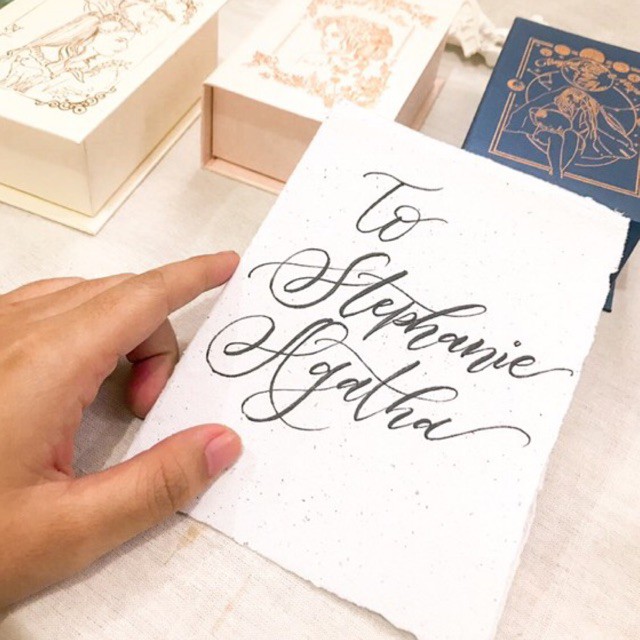 To
Stephanie
Agatha